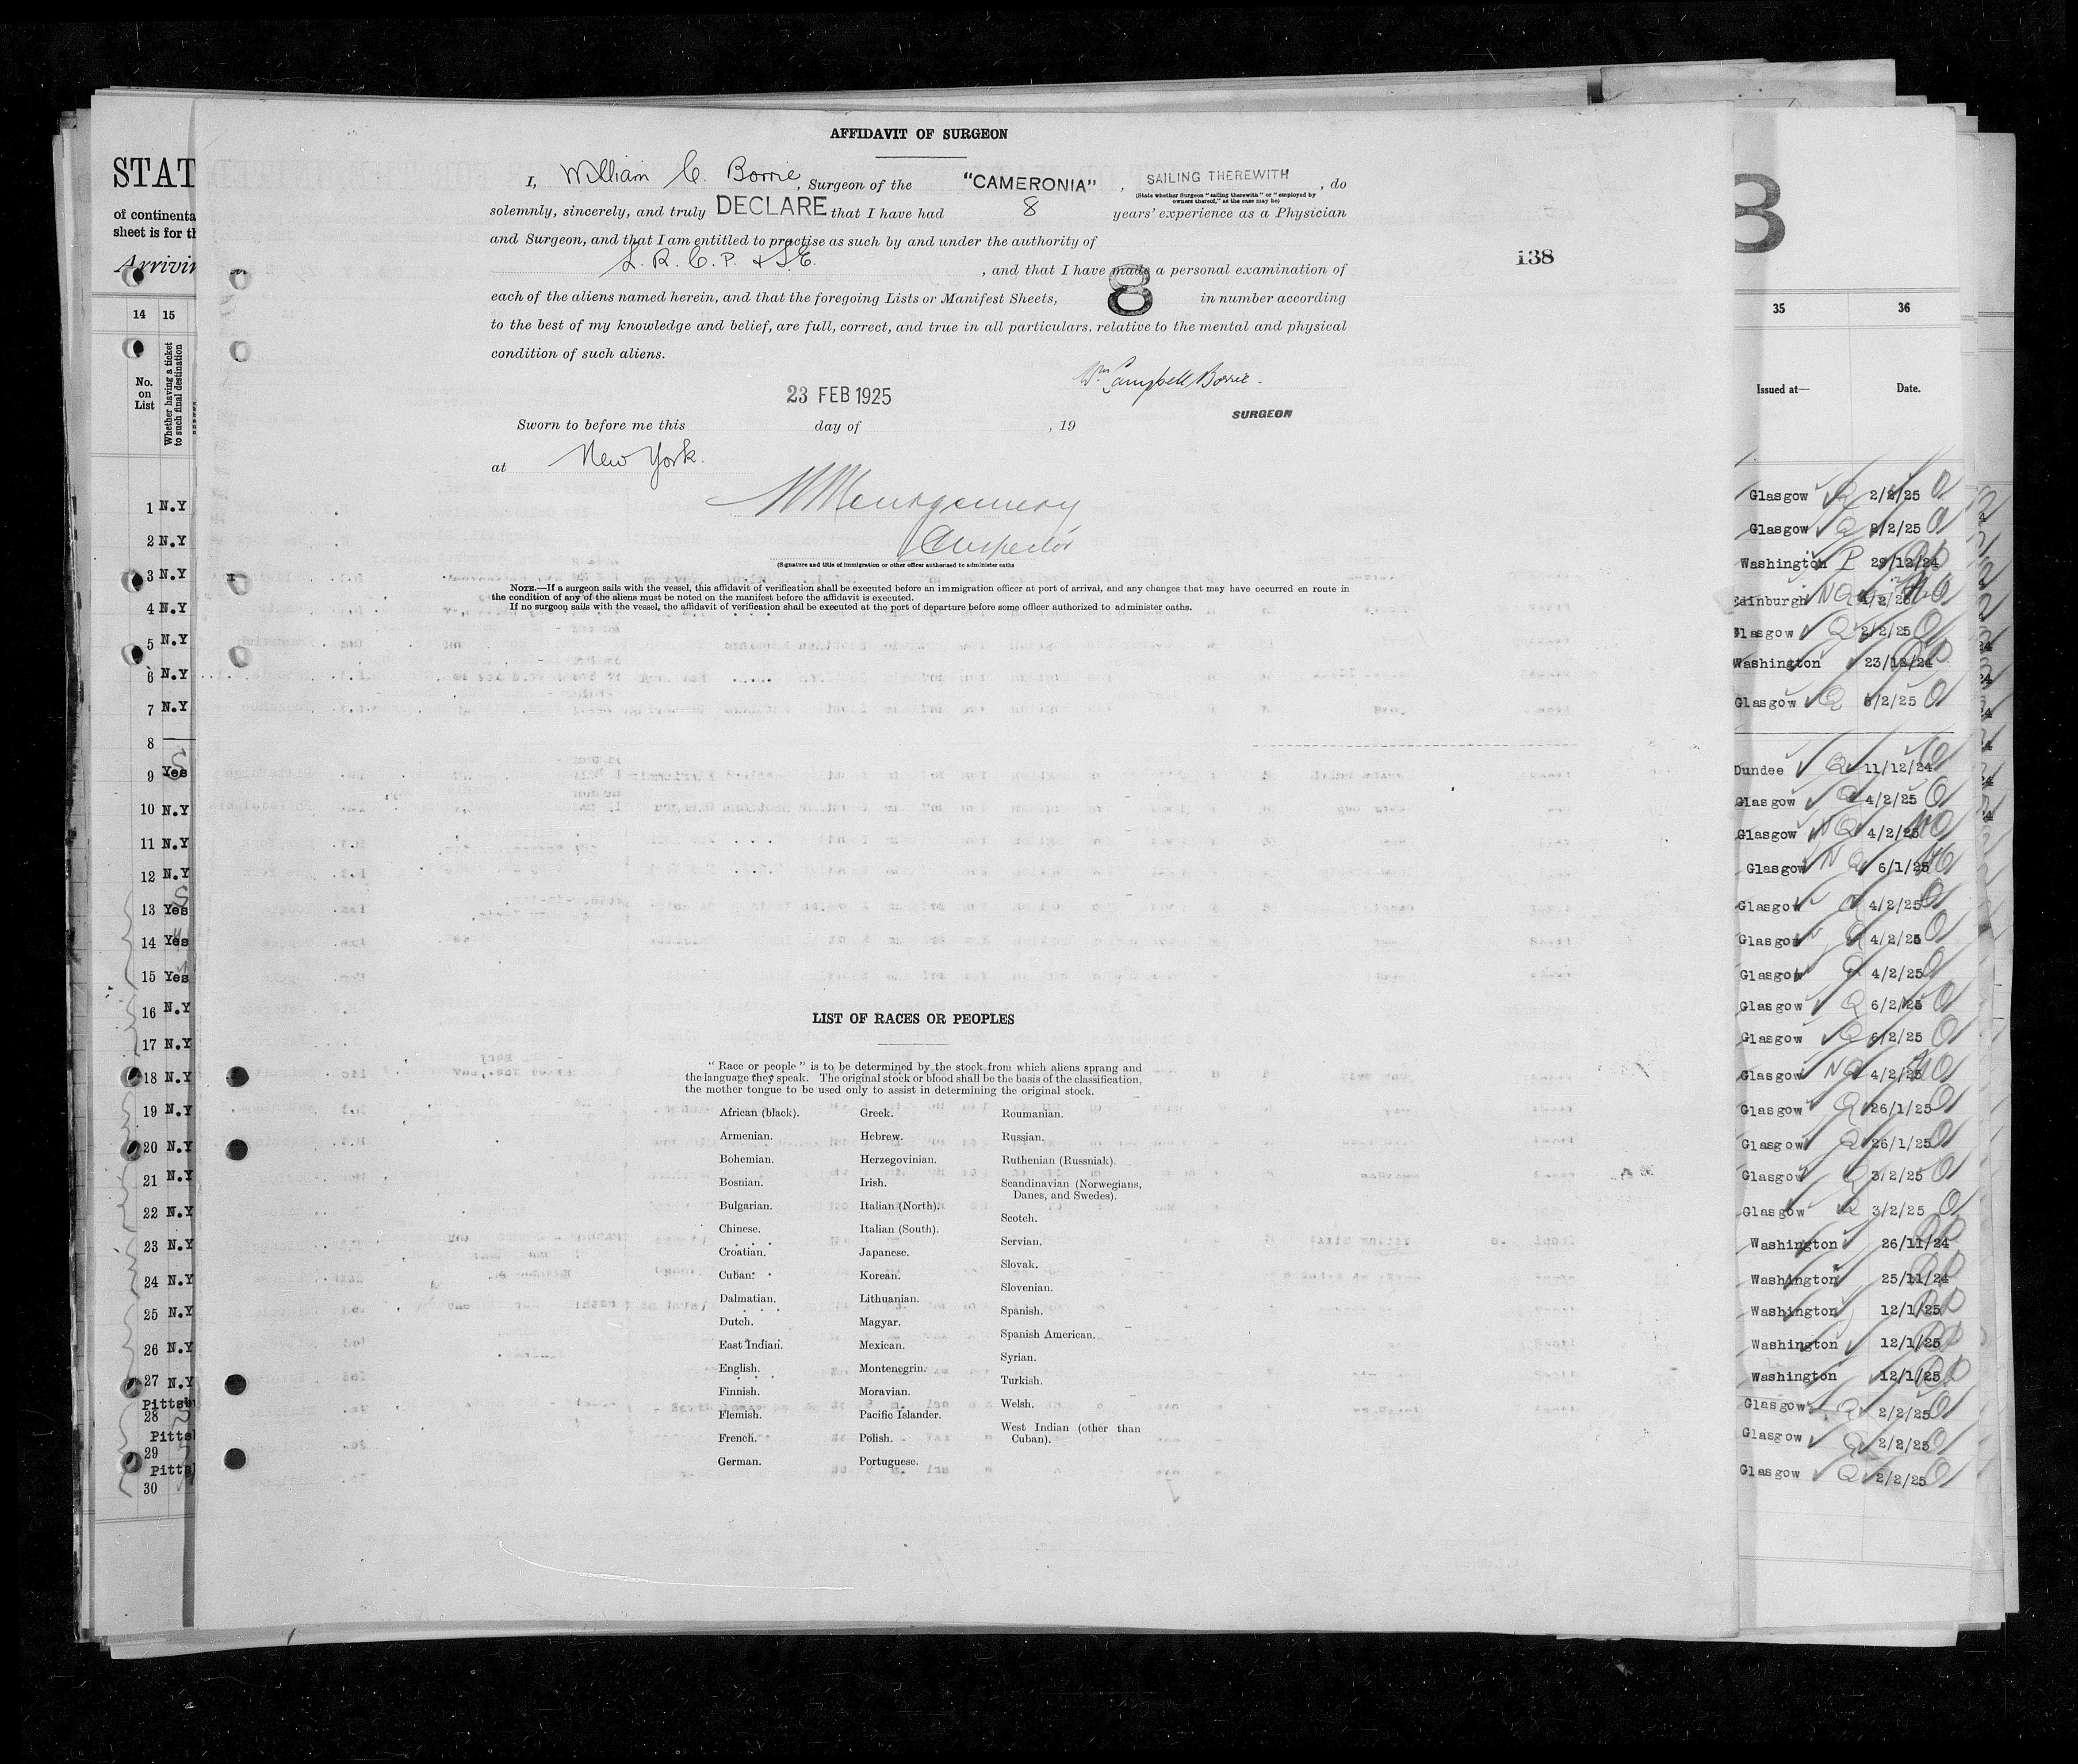 AFFIDAVIT OF SURGEON
I, William C. Borrie, Surgeon of the "CAMERONIA", SAILING THEREWITH, do
(State whether Surgeon "sailing therewith" or "employed by
owners thereof," as the case may be)
solemnly, sincerely, and truly DECLARE that I have had 8 years' experience as a Physician
and Surgeon, and that I am entitled to practise as such by and under the authority of
L. R. C. P. & S. E. , and that I have made a personal examination of
each of the aliens named herein, and that the foregoing Lists or Manifest Sheets, 8 in number according
to the best of my knowledge and belief, are full, correct, and true in all particulars, relative to the mental and physical
condition of such aliens.
Wm Campbell Borrie.
23 FEB 1925
SURGEON
Sworn to before me this day of , 19
at New York.
Montgomery
Inspector
(Signature and title of immigration or other officer authorized to administer oaths
NOTE.—If a surgeon sails with the vessel, this affidavit of verification shall be executed before an immigration officer at port of arrival, and any changes that may have occurred en route in
the condition of any of the aliens must be noted on the manifest before the affidavit is executed.
If no surgeon sails with the vessel, the affidavit of verification shall be executed at the port of departure before some officer authorized to administer oaths.
138
LIST OF RACES OR PEOPLES
"Race or people" is to be determined by the stock from which aliens sprang and
the language they speak. The original stock or blood shall be the basis of the classification,
the mother tongue to be used only to assist in determining the original stock.
African (black).
Armenian.
Bohemian.
Bosnian.
Bulgarian.
Chinese.
Croatian.
Cuban.
Dalmatian.
Dutch.
East Indian.
English.
Finnish.
Flemish.
French.
German.
Greek.
Hebrew.
Herzegovinian.
Irish.
Italian (North).
Italian (South).
Japanese.
Korean.
Lithuanian.
Magyar.
Mexican.
Montenegrin.
Moravian.
Pacific Islander.
Polish.
Portuguese.
Roumanian.
Russian.
Ruthenian (Russniak).
Scandinavian (Norwegians,
Danes, and Swedes).
Scotch.
Servian.
Slovak.
Slovenian.
Spanish.
Spanish American.
Syrian.
Turkish.
Welsh.
West Indian (other than
Cuban).
STAT
of continenta
sheet is for th
Arrivin
14 15
No.
on
List
Whether having a ticket
to such final destination
1 N.Y
2 N.Y
3 N.Y
4 N.Y
5 N.Y
6 N.Y
7 N.Y
8
9 Yes
10 N.Y
11 N.Y
12 N.Y
13 Yes
14 Yes
15 Yes
16 N.Y
17 N.Y
18 N.Y
19 N.Y
20 N.Y
21 N.Y
22 N.Y
23 N.Y
24 N.Y
25 N.Y
26 N.Y
27 N.Y
Pittsb
28
Pittsb
29
Pittsb
30
8
35 36
Issued at— Date.
Glasgow 2/2/25
Glasgow 2/25
Washington P 29/12/24
Edinburgh NQ 4/2/25
Glasgow Q 2/2/25
Washington 23/12/24
Glasgow Q 5/2/25
Dundee Q 11/12/24
Glasgow Q 4/2/25
Glasgow NQ 4/2/25
Glasgow NQ 6/1/25
Glasgow Q 4/2/25
Glasgow Q 4/2/25
Glasgow Q 4/2/25
Glasgow Q 6/2/25
Glasgow Q 6/2/25
Glasgow NQ 4/2/25
Glasgow Q 26/1/25
Glasgow Q 26/1/25
Glasgow Q 3/2/25
Glasgow Q 3/2/25
Washington 26/11/24
Washington 25/11/24
Washington 12/1/25
Washington 12/1/25
Washington 12/1/25
Glasgow Q 2/2/25
Glasgow Q 2/2/25
Glasgow Q 2/2/25